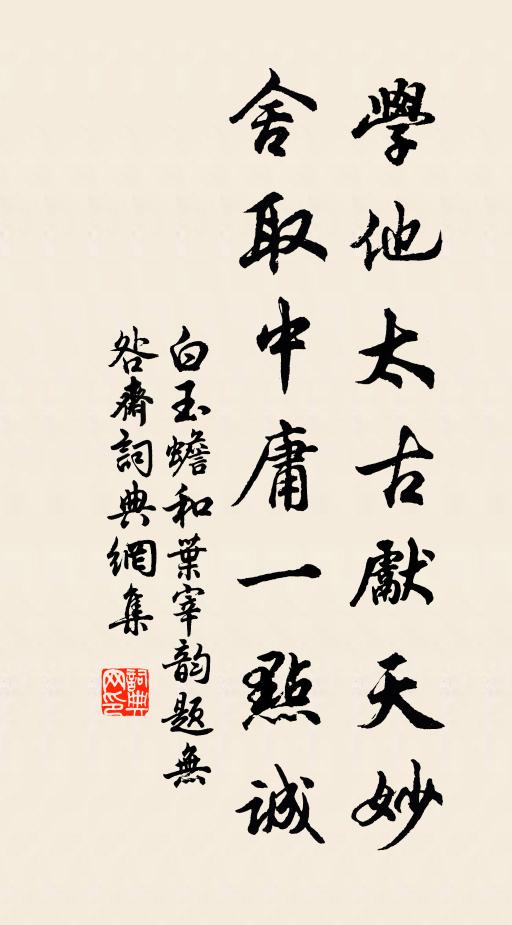 學他太古獻天妙
舍取中庸一點誠
白玉蟾和葉宰韵题無
咎齋詞典網集
詞典
网印